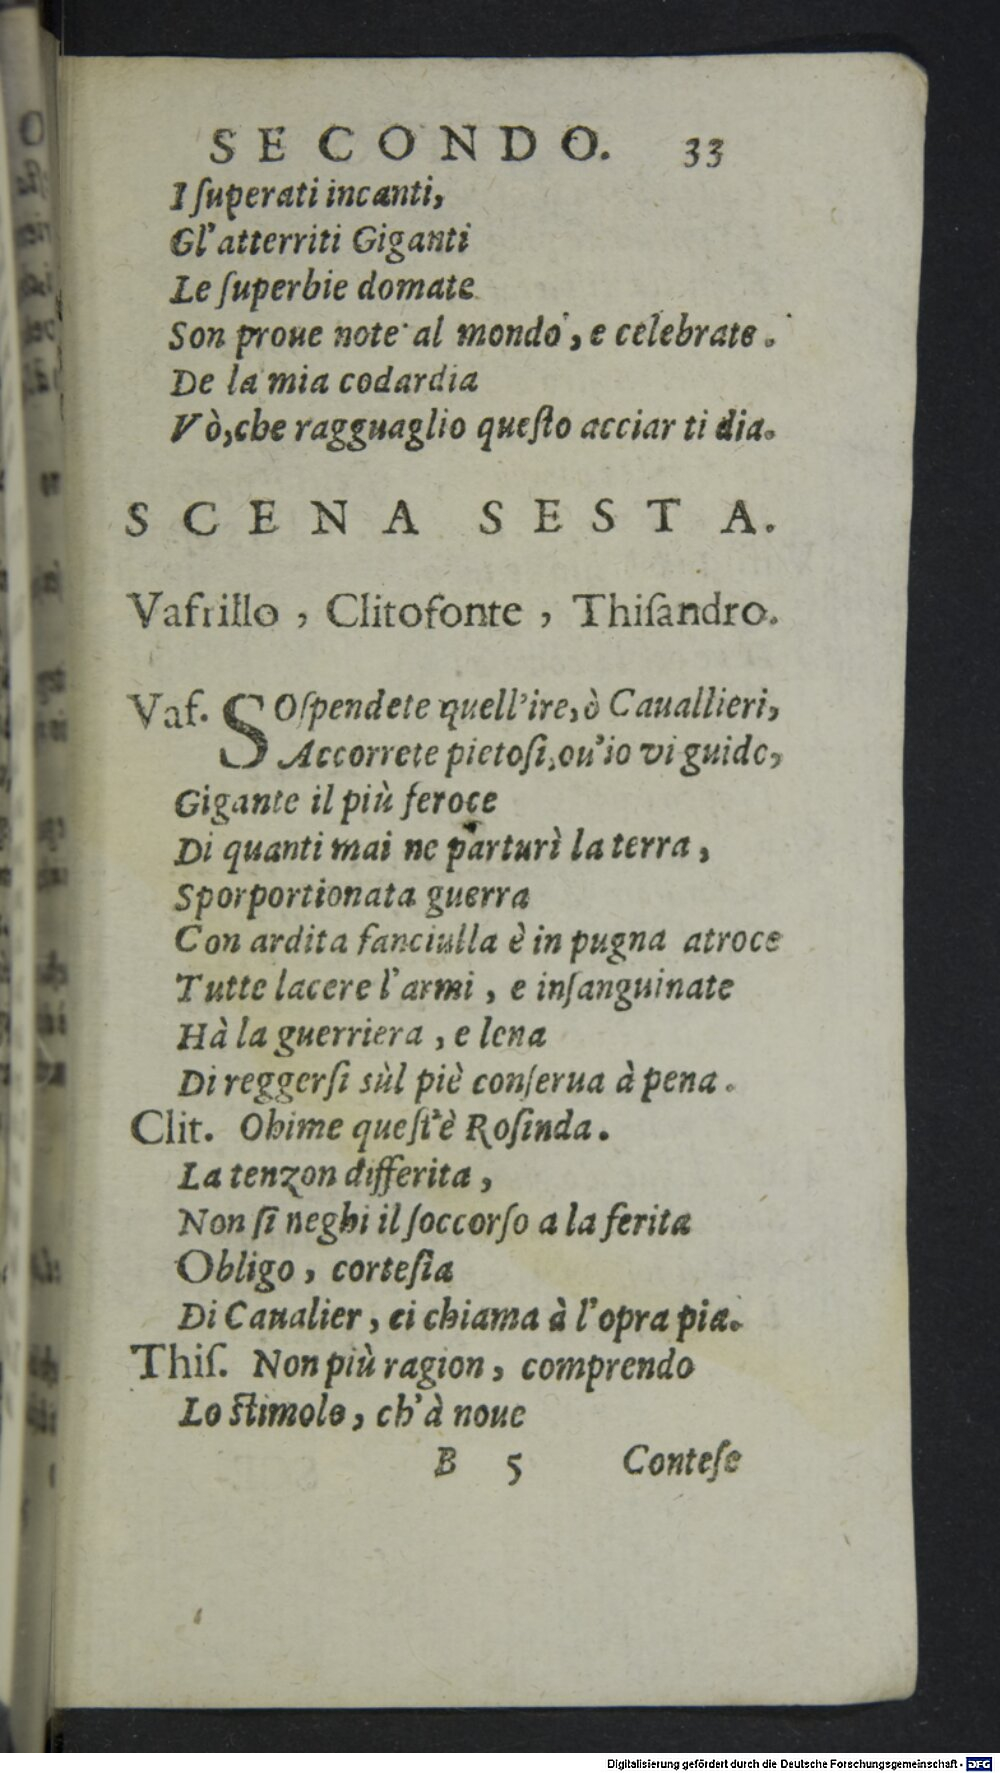 SECONDO. 33
I ſuperati incanti,
Gl'atterriti Giganti
Le ſuperbie domate
Son proue note al mondo, e celebrate.
De la mia codardia
Vò, che ragguaglio queſto acciar ti dia.
SCENA SESTA.
Vafrillo, Clitofonte, Thiſandro.
Vaf. SOſpendete quell'ire, ò Cauallieri,
Accorrete pietoſi, ou'io vi guido,
Gigante il più feroce
Di quanti mai ne parturì la terra,
Sporportionata guerra
Con ardita fanciulla è in pugna atroce
Tutte lacere l'armi, e inſanguinate
Hà la guerriera, e lena
Di reggerſi sùl piè conſerua à pena.
Clit. Ohime queſt'è Roſinda.
La tenzon differita,
Non ſi neghi il ſoccorſo a la ferita
Obligo, corteſia
Di Caualier, ci chiama à l'opra pia.
Thiſ. Non più ragion, comprendo
Lo ſtimolo, ch'à noue
B 5 Conteſe
Digitalisierung gefördert durch die Deutsche Forschungsgemeinschaft - DFG